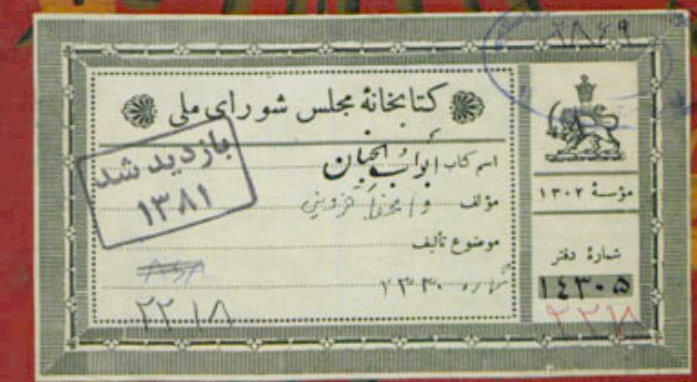 ۲۸۴۹
کتابخانهٔ مجلس شورای ملی
بازدید شد
۱۳۸۱
اسم کتاب ابواب الجنان
مؤلف واعظ قزوینی
موضوع تألیف
۷۳۳۰
۲۲۰۱۸
مؤسسهٔ ۱۳۰۲
شمارهٔ دفتر
۱٤۳۰۵